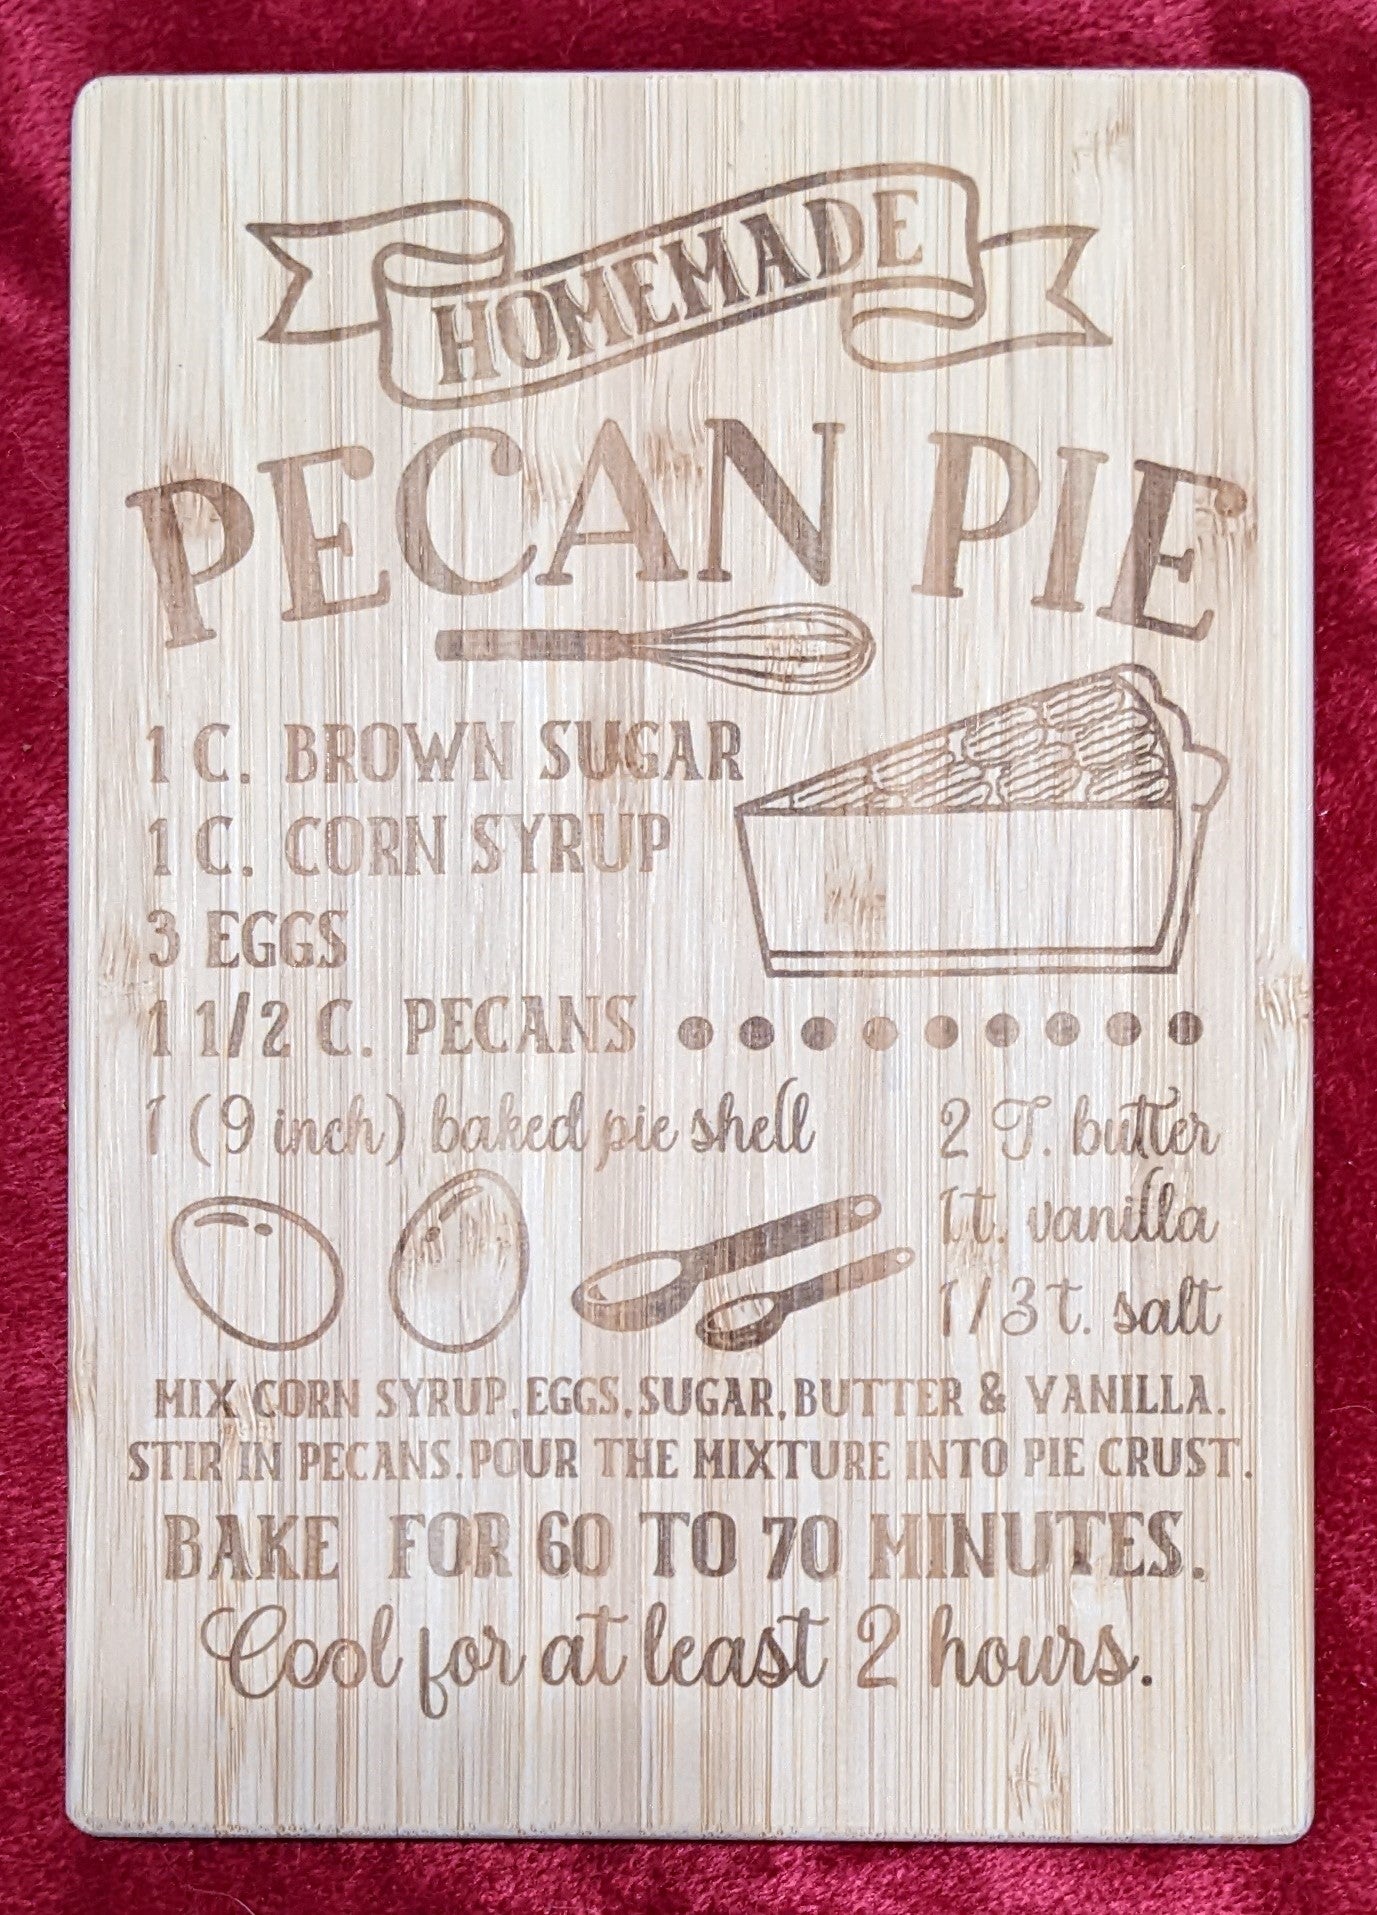 HOMEMADE
PECAN PIE
1 C. BROWN SUGAR
1 C. CORN SYRUP
3 EGGS
1 1/2 C. PECANS
1 (9 inch) baked pie shell
2 T. butter
1 t. vanilla
1/3 t. salt
MIX CORN SYRUP, EGGS, SUGAR, BUTTER & VANILLA.
STIR IN PECANS. POUR THE MIXTURE INTO PIE CRUST.
BAKE FOR 60 TO 70 MINUTES.
Cool for at least 2 hours.